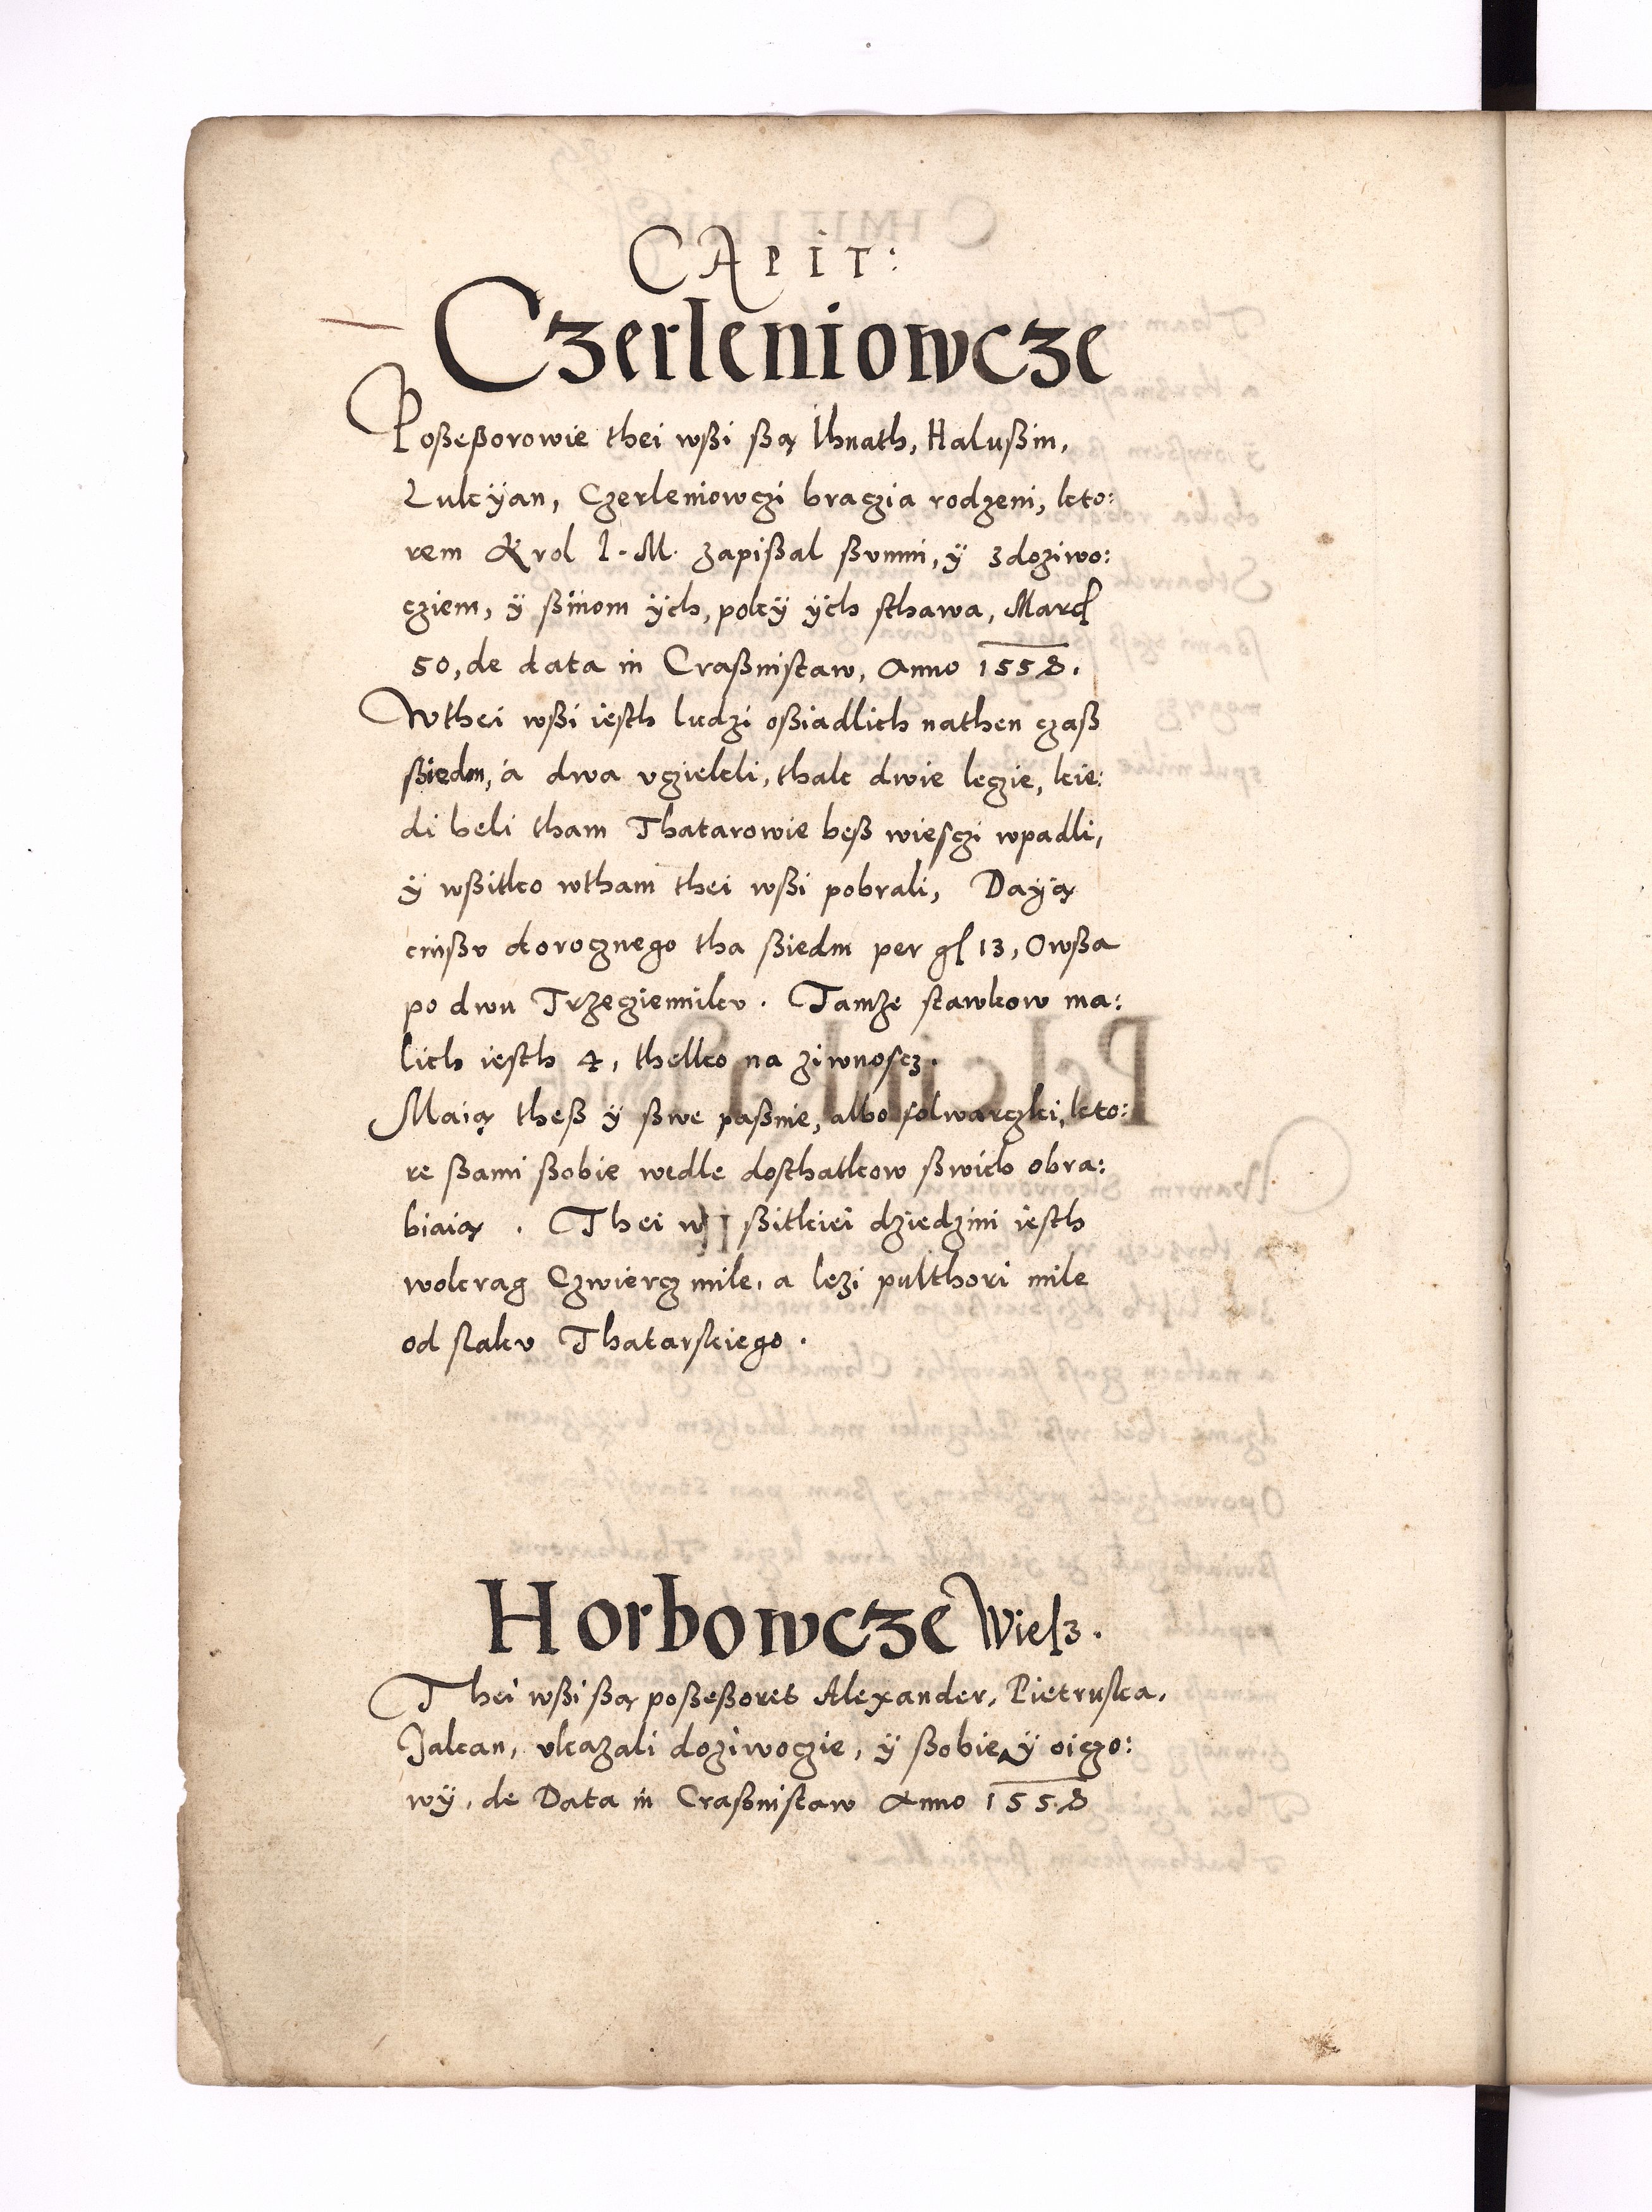 CAPIT:
Czerleniowcze
Poßeßorowie thei wßi ßą Ihnath, Halußin,
Lukÿan, Czerleniowczi braczia rodzeni, kto:
rem Krol I. M. zapißal ßummi, ÿ zdoziwo:
cziem, ÿ ßinom ÿch, pokÿ ÿch sthawa, Marcß
50, de data in Craßnistaw, Anno 1558.
Wthei wßi iesth ludzi oßiadlich nathen czaß
ßiedm, a dwa vcziekli, thak dwie lczie, kie:
di beli tham Thatarowie beß wiesczi wpadli,
ÿ wßitko wtham thei wßi pobrali, Daÿą
cinßv dorocznego tha ßiedm per gl 13, Owßa
po dwu Trzeciennikv. Tamże stawkow ma:
lich iesth 4, thelko na ziwnoscz.
Maią theß ÿ ßwe paßnie, albo folwarczki, kto:
re ßami ßobie wedle dosthatkow ßwich obra:
biaią. Thei w ßitkiei dziedzini iesth
wokrag Czwiercz mile, a lezi pulthori mile
od slakv Thatarskiego.
Horbowcze Wiesz.
Thei wßi ßą poßeßores Alexander, Pietruska,
Jakan, vkazali doziwoczie, ÿ ßobie ÿ oiczo:
wÿ, de Data in Craßnistaw Anno 1558